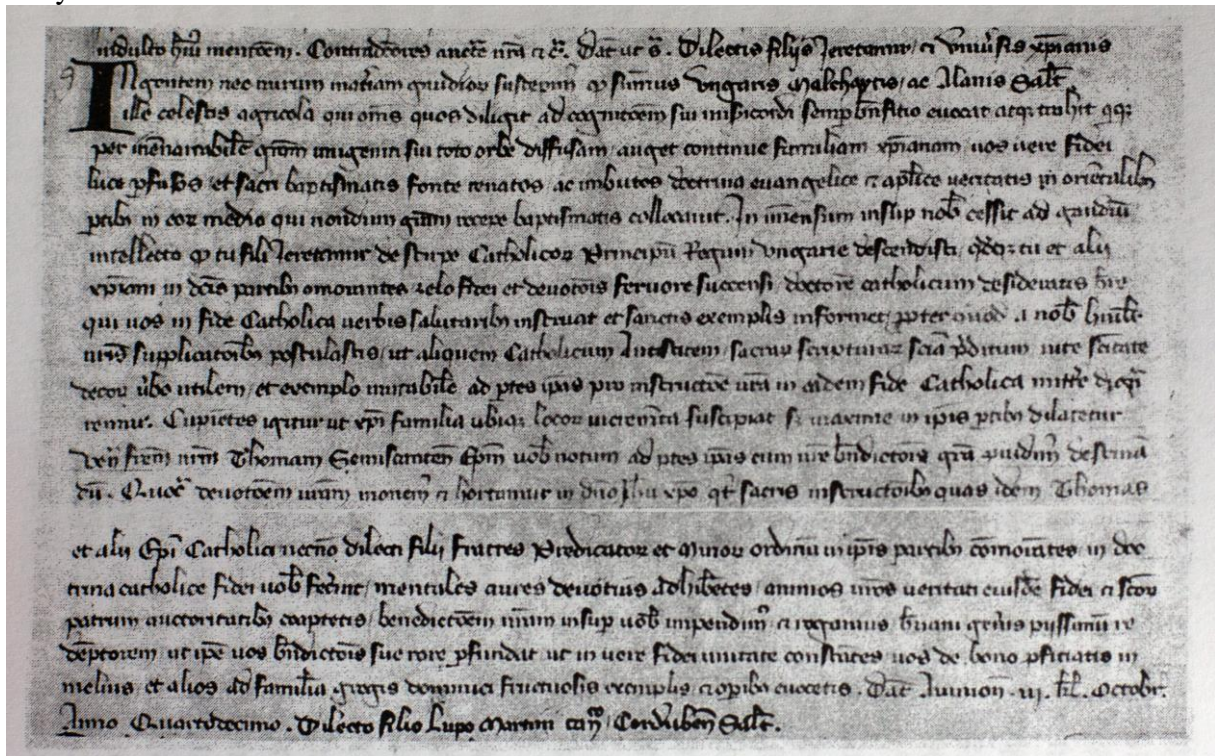 indulto hmoi mentoem. Contradcores aucte nra &c. Dat ut s. Dilectis filijs Jeretanny, et Vniusis xpianis
INgentem nec mirum matiam gaudior suscepimus q sumus Vngaris Malchaytis, ac Alanis Salt
ille celestis agricola qui oms quos diligit ad cognitoem sui misicordi semp bnficio euocat atq trahit
per inenarrabile gram unigeniti sui toto orbe diffusam, auget continue familiam xpianam, uos uere fidei
luce pfusos, et sacri baptismatis fonte renatos ac imbutos doctrina euangelice et aplice ueritatis in orientalib
ptib in eor medio qui nondum gram recepe baptismatis collocauit. In imensum insup nob cessit ad gaudiu
intellecto q tu fili Jeretanny de stirpe Catholicor Principu Regum Vngarie descendisti, tu et alij
xpiani in dcis partib omorantes zelo fidei et deuotois feruore succensi, doctore catholicum desideratis hre
qui uos in fide Catholica uerbis salutarib instruat et sanctis exemplis informet, ppter quod a nob humilit
uris supplicatoib postulastis, ut aliquem Catholicum Antistitem, sacrar scripturar scia pditum, uite scitate
decor, ubo utilem, et exemplo mirabile ad ptes ipas pro instructoe ura in eadem fide Catholica mitte
remur. Cupietes igitur ut xpi familia ubiq locor incremta suscipiat et maxime in ipis ptib dilatetur
Ven frem nrm Thomam Semiscanten Epm uob notum ad ptes ipas cum nre bndictois gra puidim destina
du. deuotoem uram monem et hortamur in dno Jhu xpo qt sacris instructoib quas idem Thomas
et alij Epi Catholici necno dilecti filij Fratres Predicator et Minor ordiniu in ipis partib comorates in doc
trina catholice fidei uob fecint, mentales aures deuotius adhibetes, animos uros ueritati eiusde fidei et scor
patrum auctoritatib coaptetis, benedictoem nram insup uob impendim, et rogamus humani genis pyssimu re
deptorem, ut ipe uos bndictois sue rore pfundat ut in uere fidei unitate constates uos de bono pficiatis in
melius et alios ad familia gregis dominici fructuosis exemplis et opib euocetis. Dat Auinion. iij. kl. Octobr.
Anno Quartodecimo. Dilecto filio Lupo Martini can, Corduben Salt.